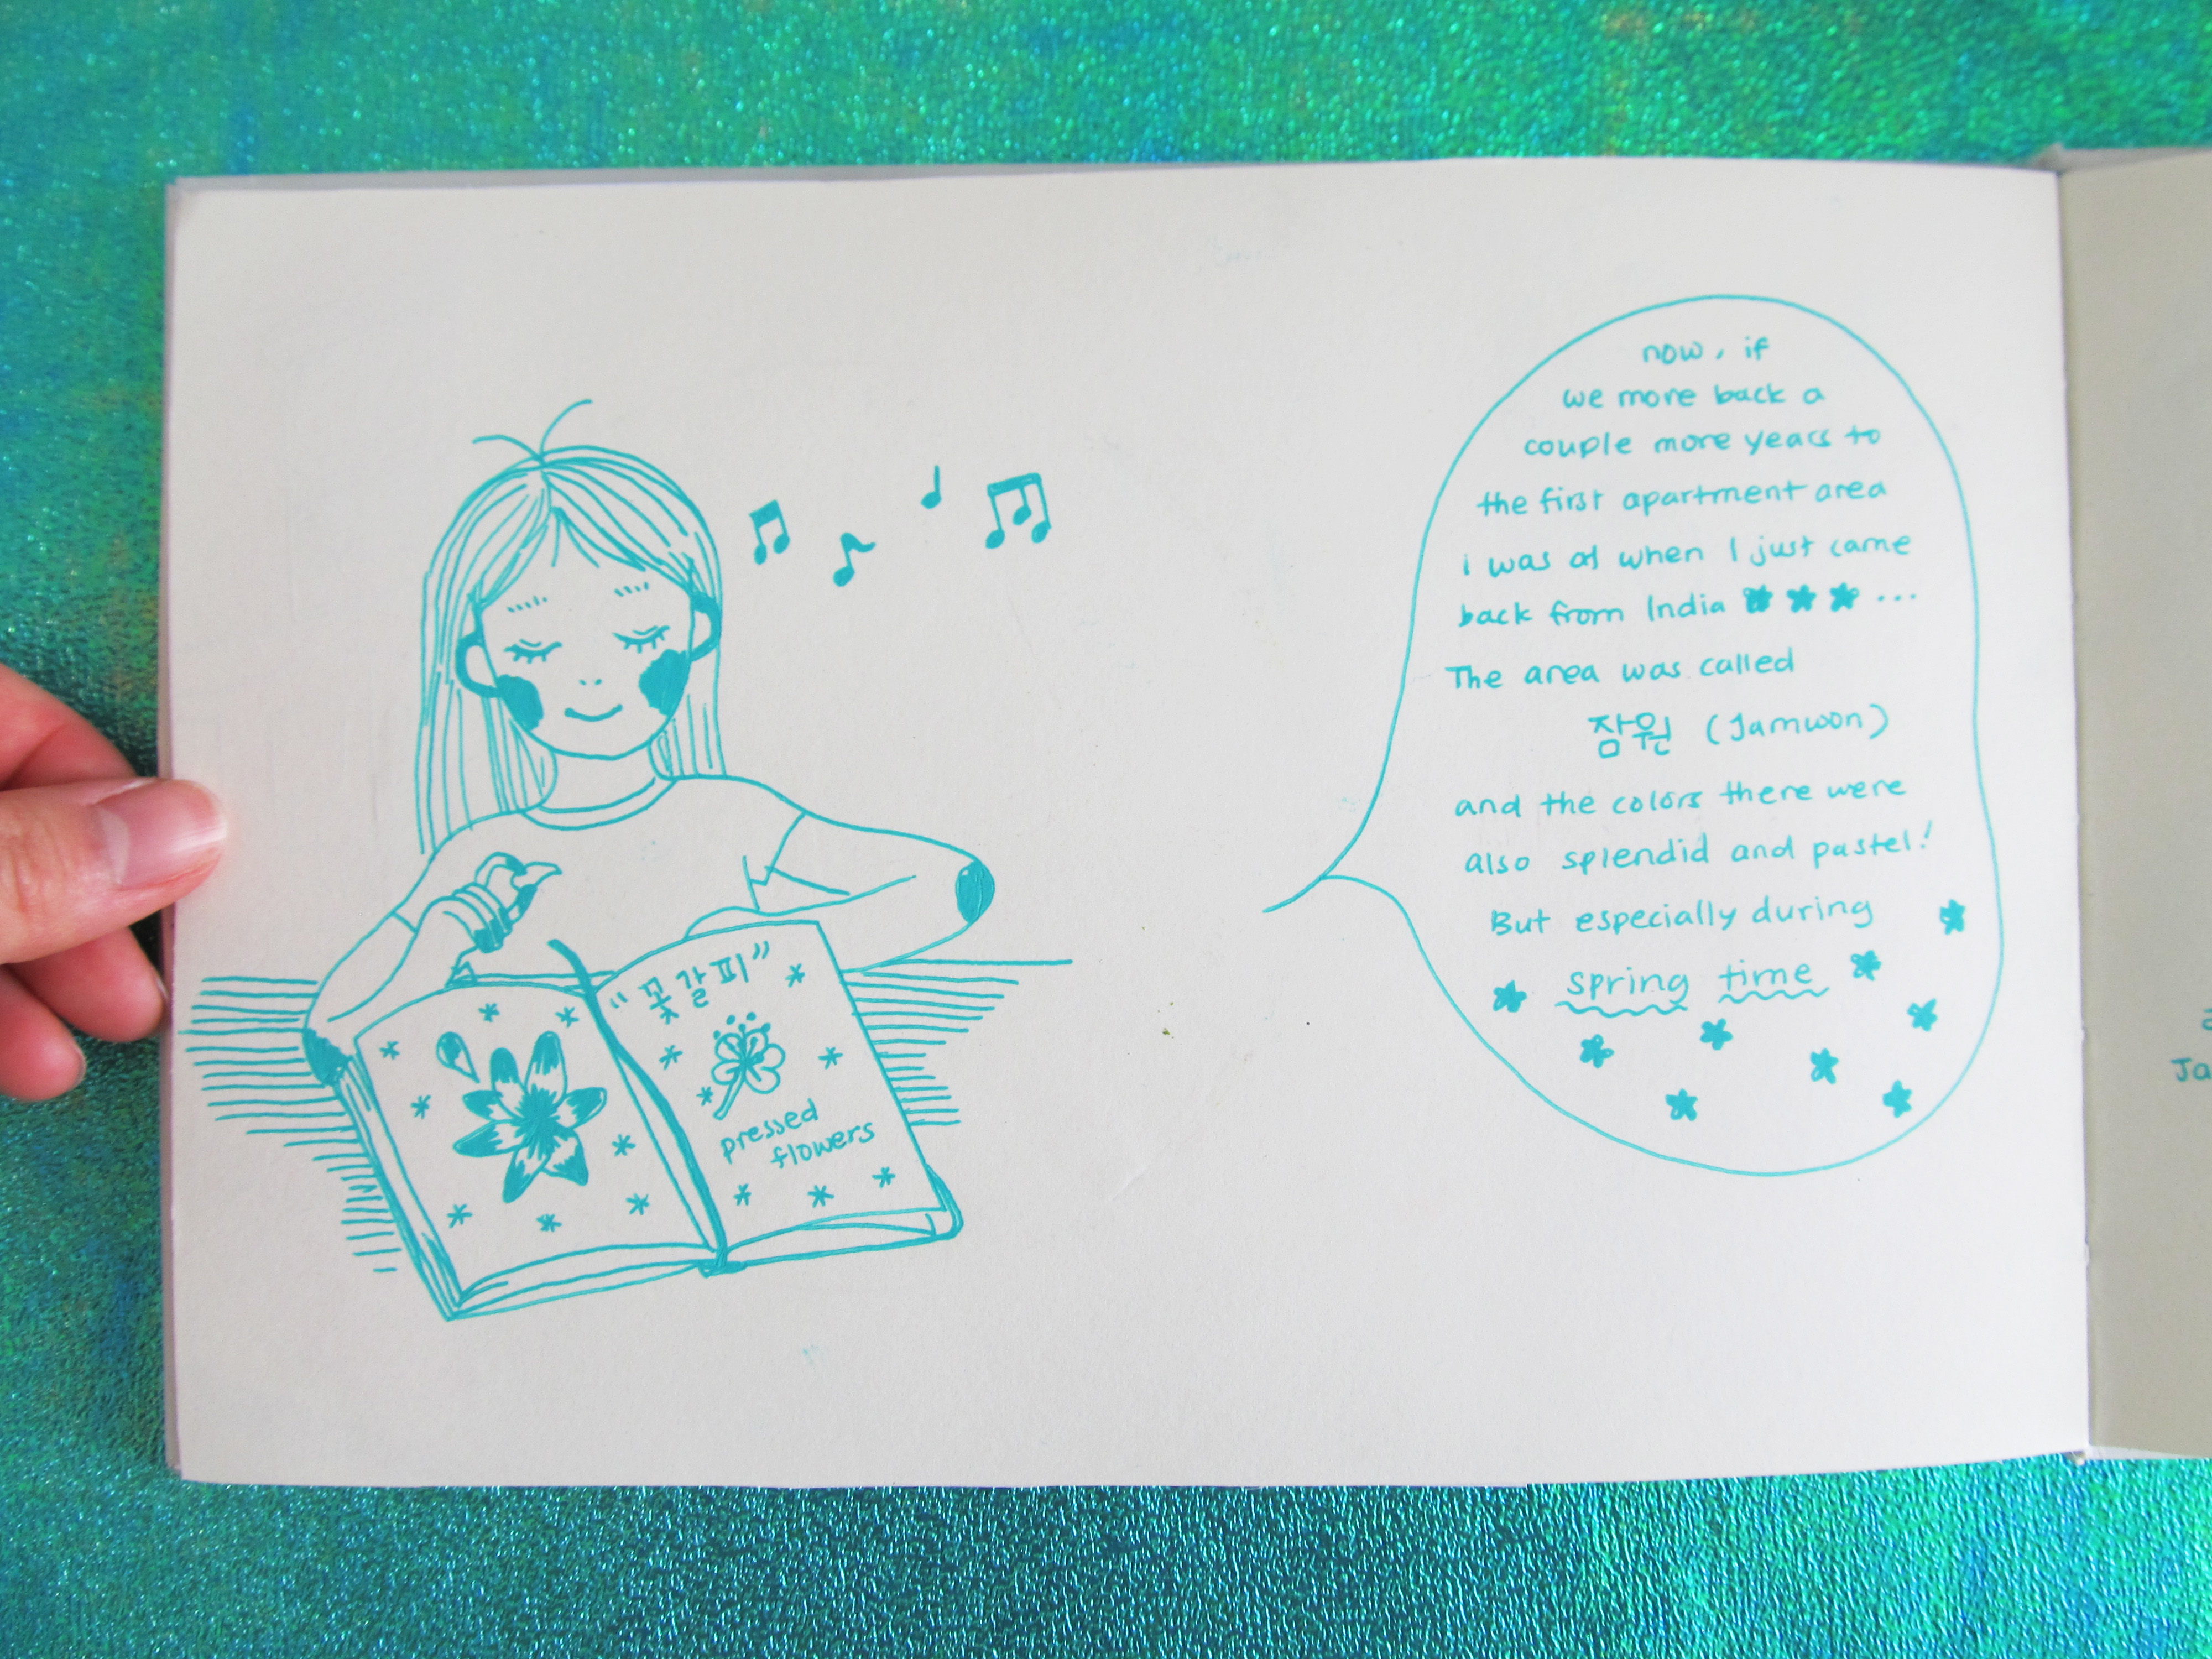 "꽃갈피"
pressed
flowers
now, if
we more back a
couple more years to
the first apartment area
i was at when I just came
back from India ...
The area was called
잠원 (Jamwon)
and the colors there were
also splendid and pastel!
But especially during
spring time
Ja